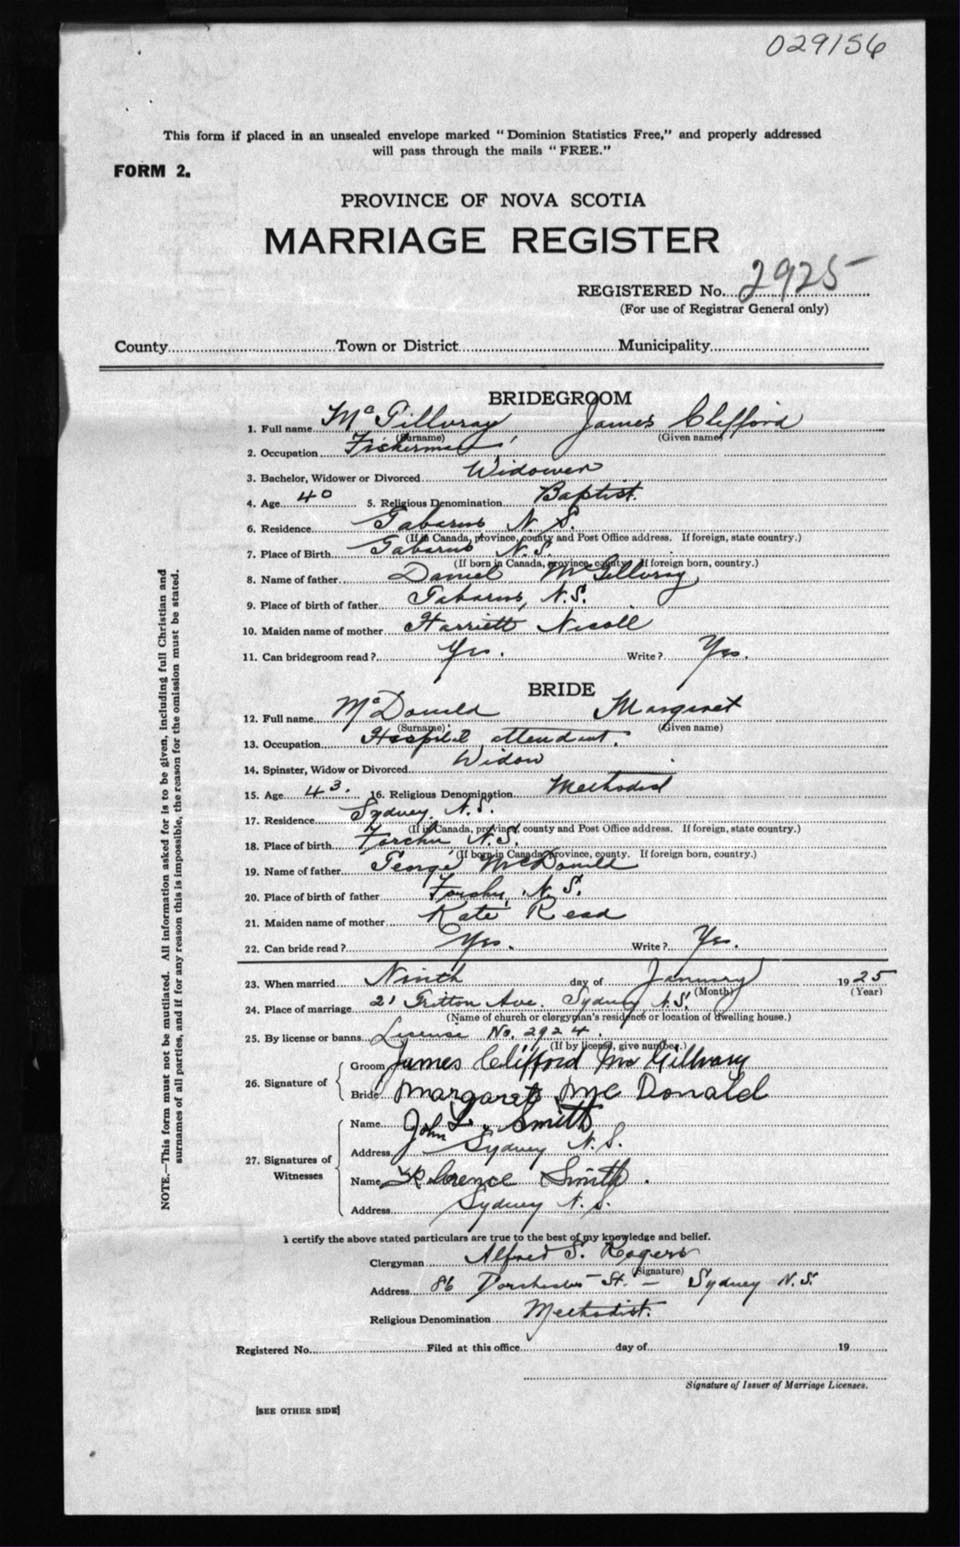 029156
This form if placed in an unsealed envelope marked "Dominion Statistics Free," and properly addressed
will pass through the mails "FREE."
FORM 2.
PROVINCE OF NOVA SCOTIA
MARRIAGE REGISTER
REGISTERED No. 2925
(For use of Registrar General only)
County Town or District Municipality
BRIDEGROOM
1. Full name McGillvray James Clifford
(Surname) (Given name)
2. Occupation Fisherman
3. Bachelor, Widower or Divorced Widower
4. Age 40 5. Religious Denomination Baptist.
6. Residence Gabarus N. S.
(If in Canada, province, county and Post Office address. If foreign, state country.)
7. Place of Birth Gabarus N. S.
(If born in Canada, province, county. If foreign born, country.)
8. Name of father Daniel McGillvray
9. Place of birth of father Gabarus, N.S.
10. Maiden name of mother Harriett Nicoll
11. Can bridegroom read? Yes. Write? Yes.
BRIDE
12. Full name McDonald Margaret
(Surname) (Given name)
13. Occupation Hospital attendant.
14. Spinster, Widow or Divorced Widow
15. Age 43. 16. Religious Denomination Methodist
17. Residence Sydney, N.S.
(If in Canada, province, county and Post Office address. If foreign, state country.)
18. Place of birth Forchu N.S.
(If born in Canada, province, county. If foreign born, country.)
19. Name of father George McDonald
20. Place of birth of father Forchu, N.S.
21. Maiden name of mother Kate Read
22. Can bride read? Yes. Write? Yes.
23. When married Ninth day of January 1925
(Month) (Year)
24. Place of marriage 21 Ave. Sydney N.S.
(Name of church or clergyman's residence or location of dwelling house.)
25. By license or banns License No. 2924.
(If by license, give number.)
26. Signature of
Groom James Clifford McGillvary
Bride Margaret McDonald
27. Signatures of Witnesses
Name John L. Smith
Address Sydney N.S.
Name Florence Smith.
Address Sydney N.S.
I certify the above stated particulars are true to the best of my knowledge and belief.
Clergyman Alfred S. Rogers
(Signature)
Address 86 Dorchester St. — Sydney N.S.
Religious Denomination Methodist.
Registered No. Filed at this office day of 19
Signature of Issuer of Marriage Licenses.
[SEE OTHER SIDE]
NOTE.—This form must not be mutilated. All information asked for is to be given, including full Christian and
surnames of all parties, and if for any reason this is impossible, the reason for the omission must be stated.